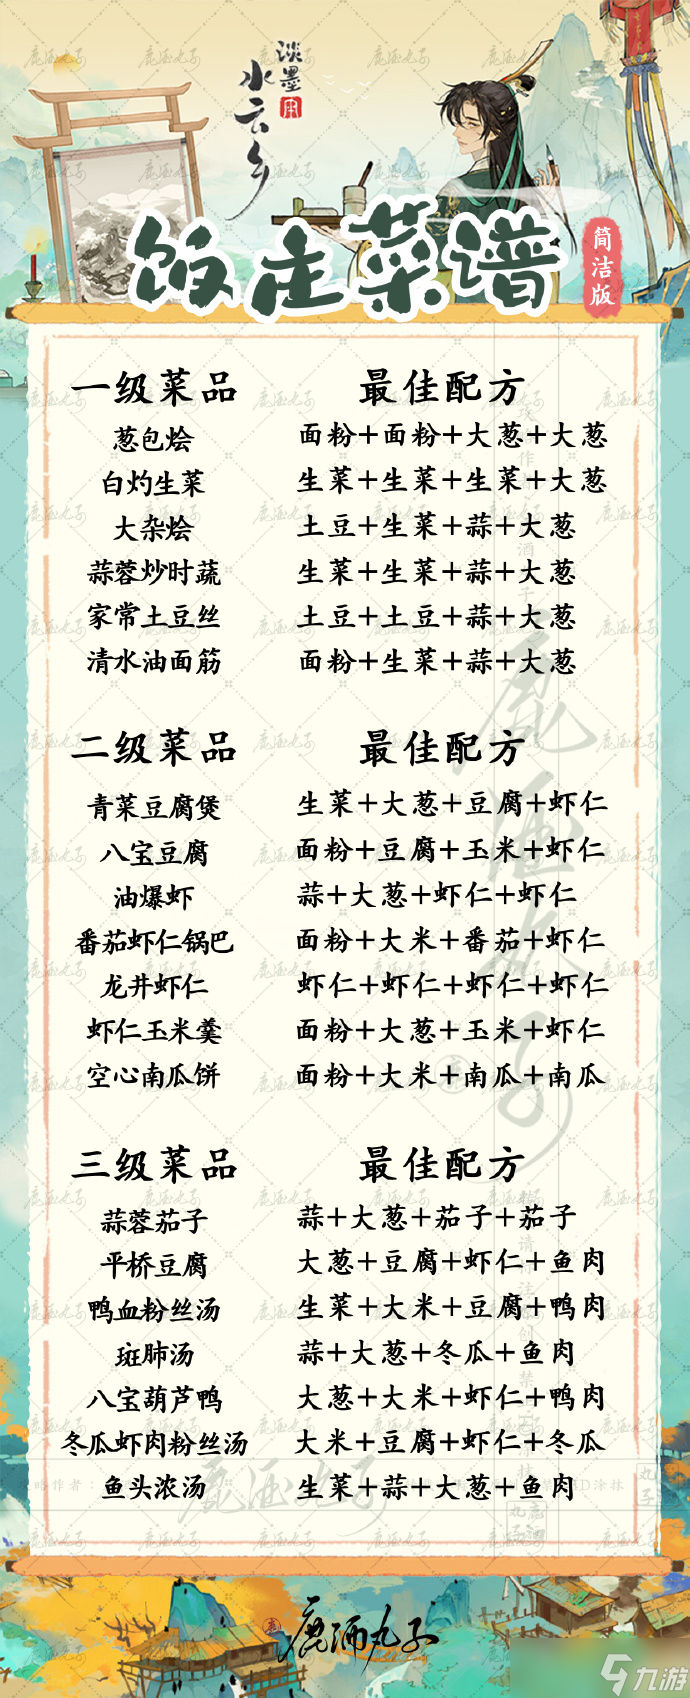 淡墨
水云乡
饭走菜谱
简洁版
一级菜品 最佳配方
葱包烩 面粉+面粉+大葱+大葱
白灼生菜 生菜+生菜+生菜+大葱
大杂烩 土豆+生菜+蒜+大葱
蒜蓉炒时蔬 生菜+生菜+蒜+大葱
家常土豆丝 土豆+土豆+蒜+大葱
清水油面筋 面粉+生菜+蒜+大葱
二级菜品 最佳配方
青菜豆腐煲 生菜+大葱+豆腐+虾仁
八宝豆腐 面粉+豆腐+玉米+虾仁
油爆虾 蒜+大葱+虾仁+虾仁
番茄虾仁锅巴 面粉+大米+番茄+虾仁
龙井虾仁 虾仁+虾仁+虾仁+虾仁
虾仁玉米羹 面粉+大葱+玉米+虾仁
空心南瓜饼 面粉+大米+南瓜+南瓜
三级菜品 最佳配方
蒜蓉茄子 蒜+大葱+茄子+茄子
平桥豆腐 大葱+豆腐+虾仁+鱼肉
鸭血粉丝汤 生菜+大米+豆腐+鸭肉
斑肺汤 蒜+大葱+冬瓜+鱼肉
八宝葫芦鸭 大葱+大米+虾仁+鸭肉
冬瓜虾肉粉丝汤 大米+豆腐+虾仁+冬瓜
鱼头浓汤 生菜+蒜+大葱+鱼肉
鹿酒丸子
九游